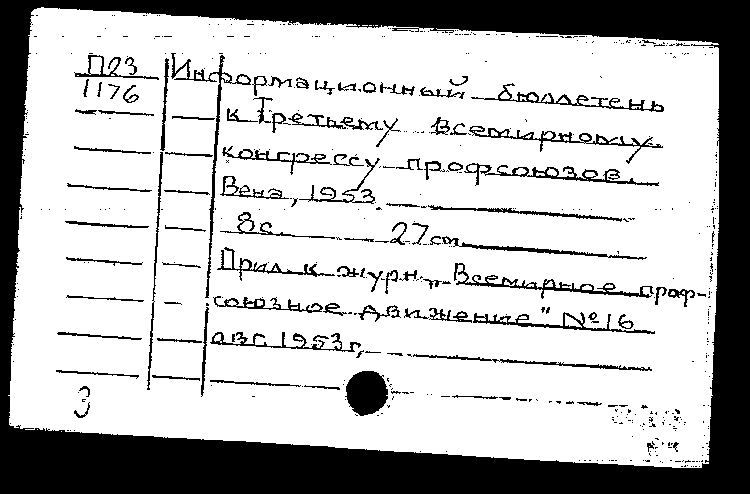 П23
1176
Информационный бюллетень
к Третьему Всемирному
конгрессу профсоюзов.
Вена, 1953.
8с. 27см.
Прил. к журн. „Всемирное проф-
союзное движение" №16
авг. 1953г,
3